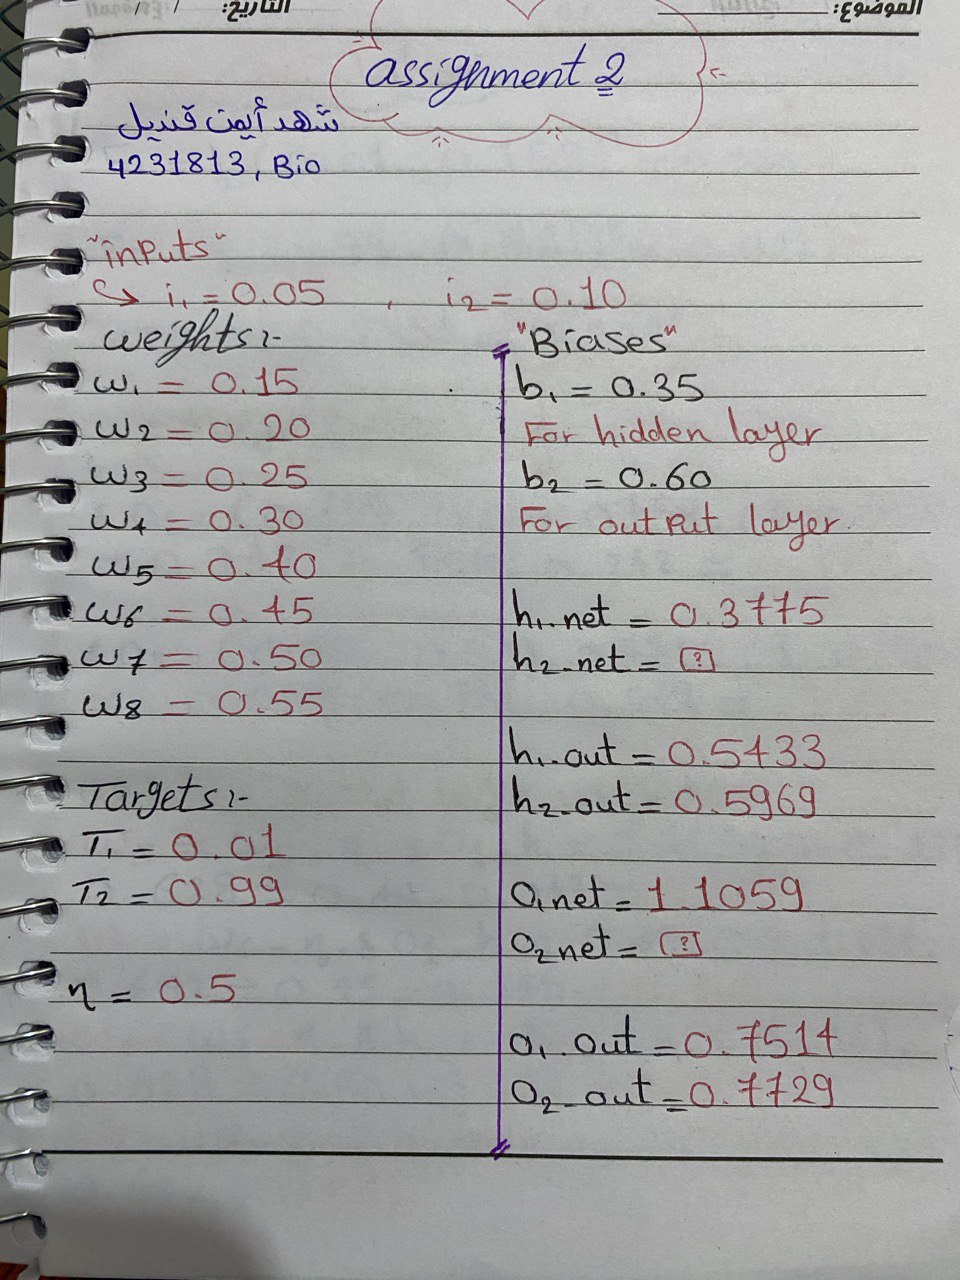 التاريخ: / /
الموضوع:
assignment 2
شهد أيمن قنديل
4231813, Bio
"inputs"
↳ i₁ = 0.05 , i₂ = 0.10
weights:-
w₁ = 0.15
w₂ = 0.20
w₃ = 0.25
w₄ = 0.30
w₅ = 0.40
w₆ = 0.45
w₇ = 0.50
w₈ = 0.55
Targets:-
T₁ = 0.01
T₂ = 0.99
η = 0.5
"Biases"
b₁ = 0.35
For hidden layer
b₂ = 0.60
For output layer.
h₁.net = 0.3775
h₂-net = [?]
h₁.out = 0.5433
h₂-out = 0.5969
o₁net = 1.1059
o₂net = [?]
o₁.out = 0.7514
o₂-out = 0.7729